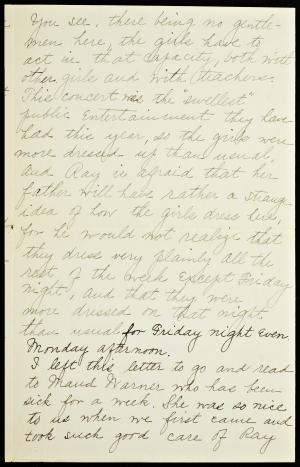 You see, there being no gentle-
men here, the girls have to
act in that capacity, both with
other girls and with teachers.
This concert was the "swellest"
public Entertainment they have
had this year, so the girls were
more dressed up than usual,
and Ray is afraid that her
father will have rather a strange
idea of how the girls dress here,
for he would not realize that
they dress very plainly all the
rest of the week except Friday
night, and that they were
more dressed on that night
than usual for Friday night even.
Monday afternoon.
I left this letter to go and read
to Maud Warner who has been
sick for a week. She was so nice
to us when we first came and
took such good care of Ray